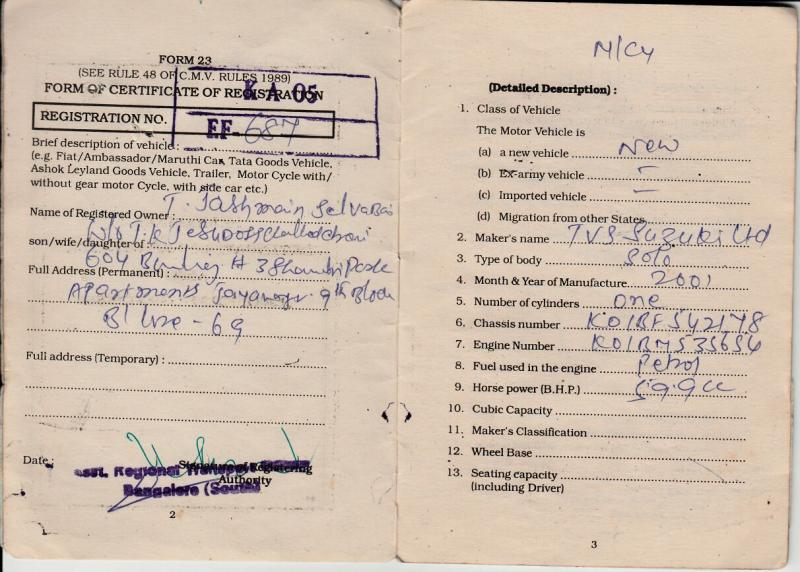 FORM 23
(SEE RULE 48 OF C.M.V. RULES 1989)
FORM OF CERTIFICATE OF REGISTRATION
KA 05
REGISTRATION NO.
EF- 687
Brief description of vehicle :
(e.g. Fiat/Ambassador/Maruthi Car, Tata Goods Vehicle,
Ashok Leyland Goods Vehicle, Trailer, Motor Cycle with/
without gear motor Cycle, with side car etc.)
Name of Registered Owner : T. Jashmain Selva Bai
son/wife/daughter of : W/o T.K
Full Address (Permanent) : 604 Building # 3 Shanthi Park
Apartments Jayanagar 9th Block
B'lore - 69
Full address (Temporary) :
Date :
Signature of Registering
Authority
Asst. Regional Transport
Bangalore (South)
2
M/Cy
(Detailed Description) :
1. Class of Vehicle
The Motor Vehicle is
(a) a new vehicle New
(b) Ex-army vehicle -
(c) Imported vehicle -
(d) Migration from other States
2. Maker's name TVS Suzuki Ltd
3. Type of body Solo
4. Month & Year of Manufacture 2001
5. Number of cylinders One
6. Chassis number K01BF542178
7. Engine Number K01BM535656
8. Fuel used in the engine Petrol
9. Horse power (B.H.P.)
10. Cubic Capacity
11. Maker's Classification
12. Wheel Base
13. Seating capacity
(including Driver)
3